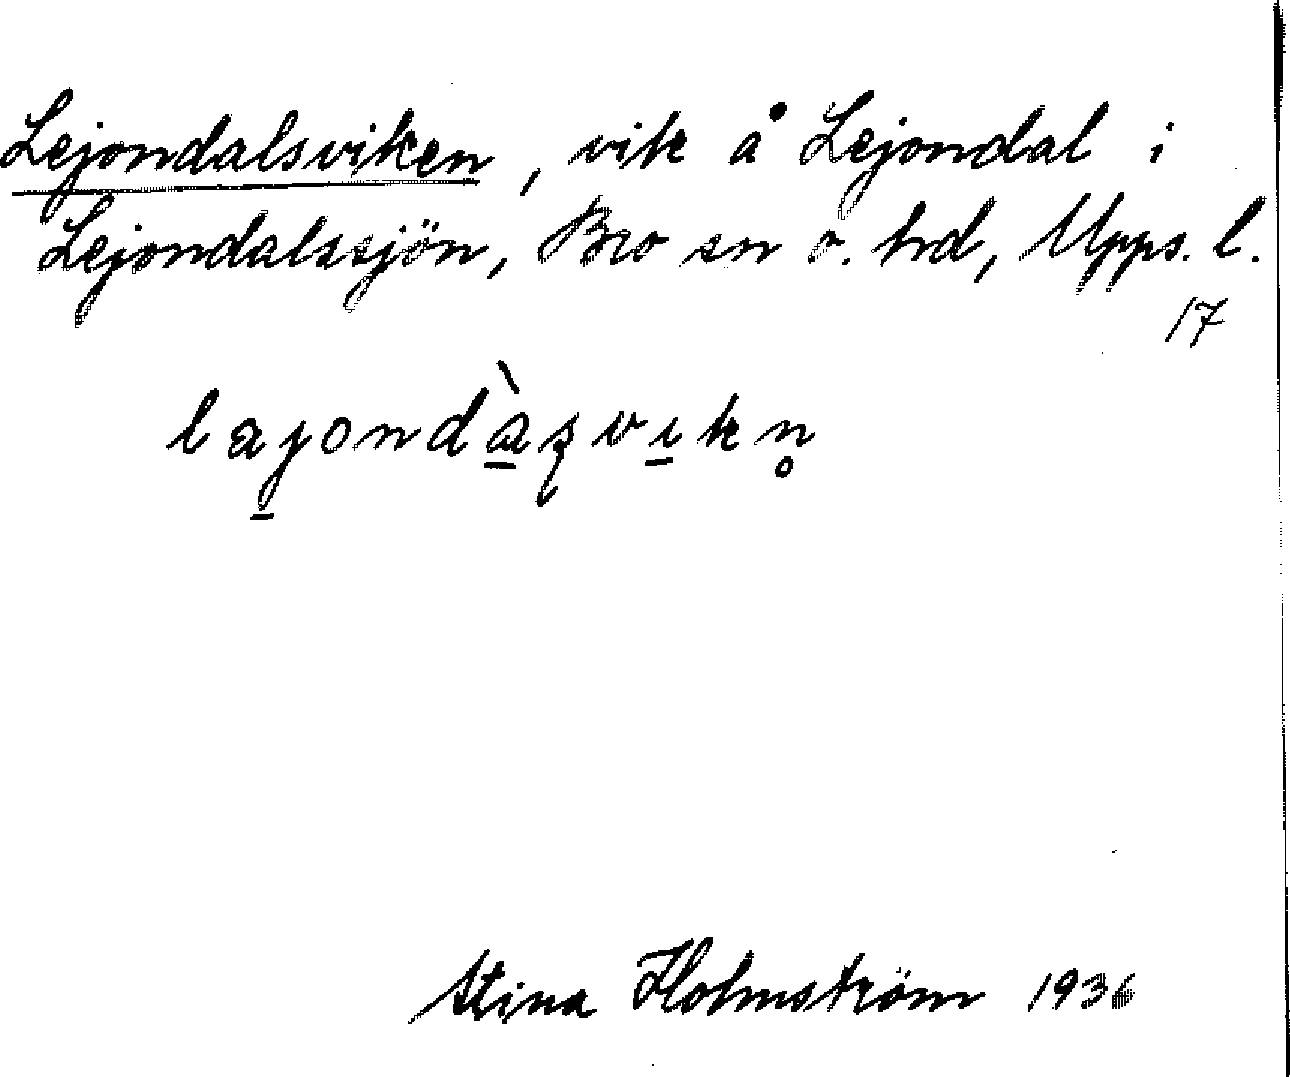 Lejondalsviken, vik å Lejondal i
Lejondalssjön, Bro sn o. hd, Upps. l.
17
Stina Holmström 1936